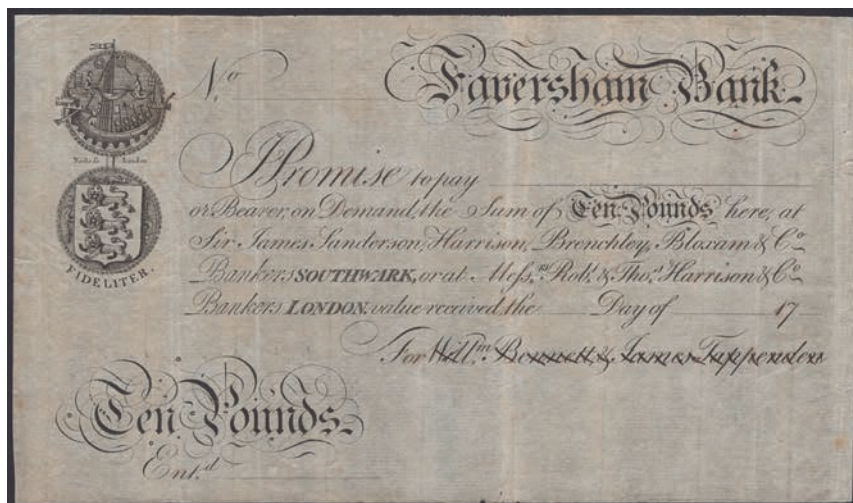 No
Faversham Bank
I Promise to pay
or Bearer, on Demand, the Sum of Ten Pounds here, at
Sir James Sanderson, Harrison, Brenchley, Bloxam & Co
Bankers SOUTHWARK, or at Mess.rs Rob.t & Tho.s Harrison & Co
Bankers LONDON, value received the Day of 17
For Will.m Bennett, & James Tappenden
FIDELITER.
Ten Pounds
Ent.d